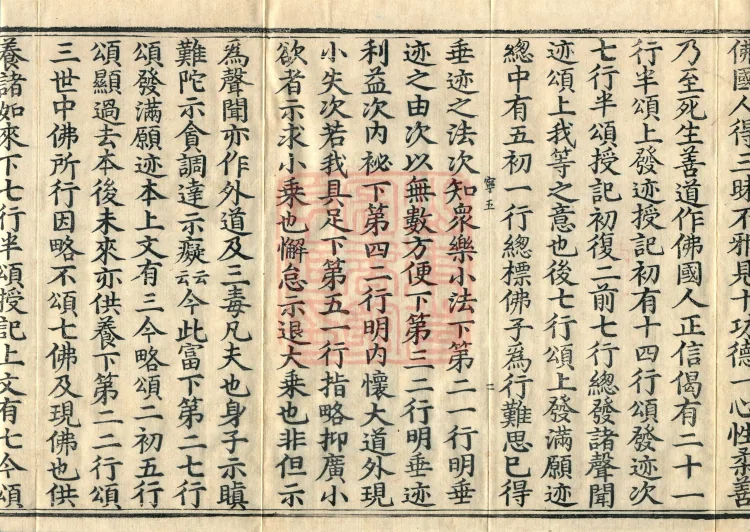 佛國人得三時不邪見十功德一心性柔善
乃至死生善道作佛國人正信偈有二十一
行半頌上發迹授記初有十四行頌發迹次
七行半頌授記初復二前七行總發諸聲聞
迹頌上我等之意也後七行頌上發滿願迹
總中有五初一行總標佛子為行難思已得
寧五 二
垂迹之法次知衆樂小法下第二一行明垂
迹之由次以無數方便下第三二行明垂迹
利益次內祕下第四二行明內懷大道外現
小失次若我具足下第五一行指略抑廣小
欲者示求小乘也懈怠示退大乘也非但示
為聲聞亦作外道及三毒凡夫也身子示瞋
難陀示貪調達示癡云云今此富下第二七行
頌發滿願迹本上文有三今略頌二初五行
頌顯過去本後未來亦供養下第二二行頌
三世中佛所行因略不頌七佛及現佛也供
養諸如來下七行半頌授記上文有七今頌